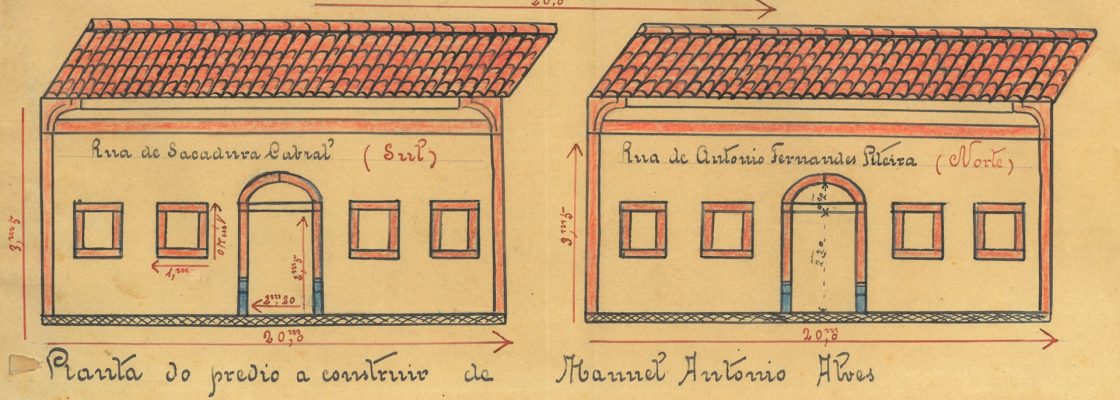 20,0
Rua de Sacadura Cabral (Sul)
Rua de Antonio Fernandes Piteira (Norte)
3,m5
1,m
2,m5
2,m20
20,m0
3,m5
2,20
20,m0
Planta do predio a construir de Manuel Antonio Alves